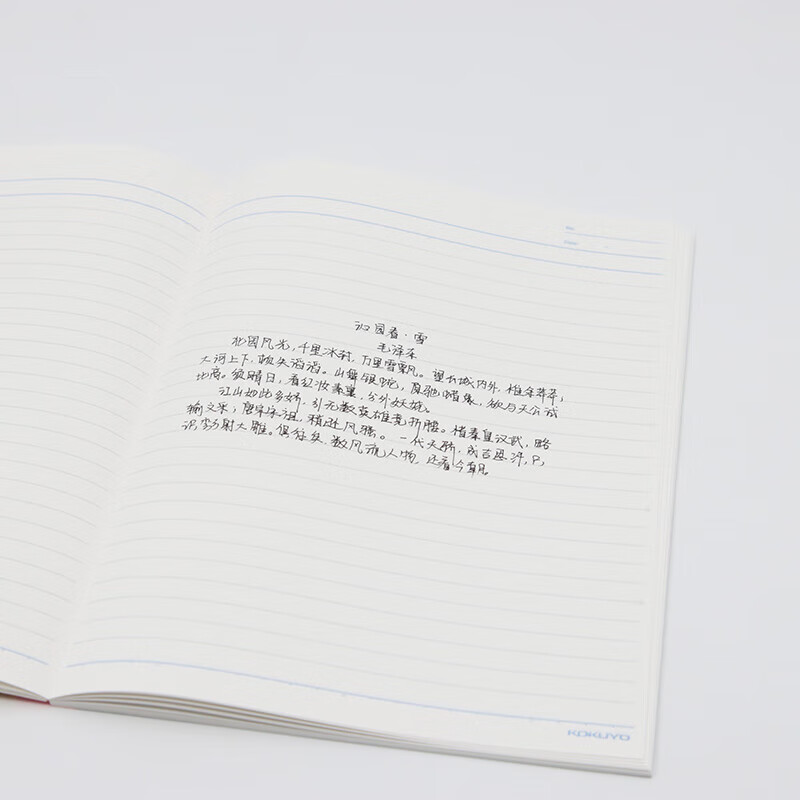 No.
Date
沁园春·雪
毛泽东
北国风光,千里冰封,万里雪飘。望长城内外,惟余莽莽;
大河上下,顿失滔滔。山舞银蛇,原驰蜡象,欲与天公试
比高。须晴日,看红妆素裹,分外妖娆。
江山如此多娇,引无数英雄竞折腰。惜秦皇汉武,略
输文采;唐宗宋祖,稍逊风骚。一代天骄,成吉思汗,只
识弯弓射大雕。俱往矣,数风流人物,还看今朝。
KOKUYO